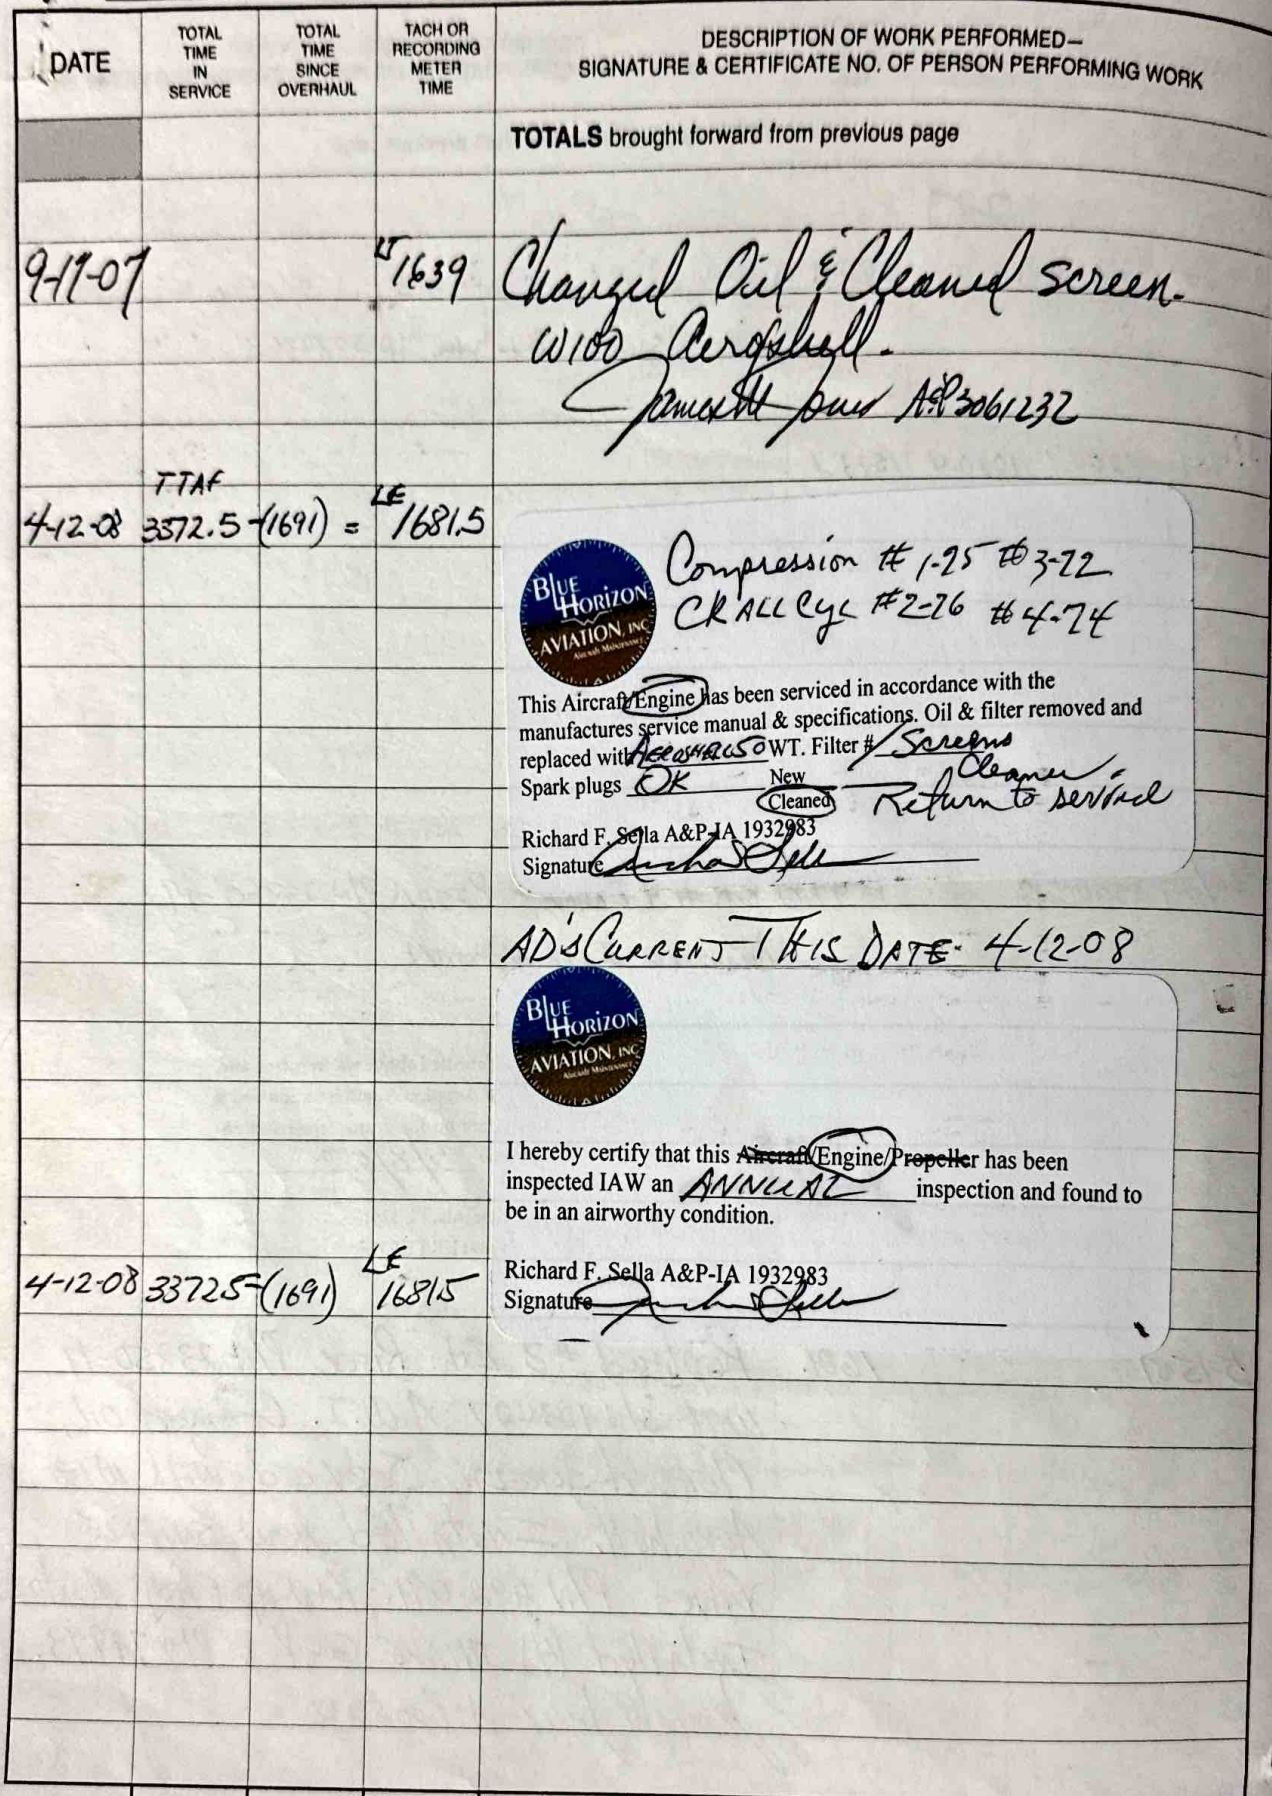 DATE
TOTAL TIME IN SERVICE
TOTAL TIME SINCE OVERHAUL
TACH OR RECORDING METER TIME
DESCRIPTION OF WORK PERFORMED—
SIGNATURE & CERTIFICATE NO. OF PERSON PERFORMING WORK
TOTALS brought forward from previous page
1639 Changed Oil & Cleaned screen.
W100 Aeroshell.
Jones A&P 3061232
TTAF
4-12-08 3372.5 -(1691) = 1681.5
BLUE HORIZON AVIATION, INC
Aircraft Maintenance
Compression # 1-75 # 3-72
CK ALL Cyl #2-76 #4-74
This Aircraft/Engine has been serviced in accordance with the
manufactures service manual & specifications. Oil & filter removed and
replaced with AEROSHELL 50 WT. Filter # / Screens
Cleaned.
Spark plugs OK New
Cleaned Return to service
Richard F. Sella A&P-IA 1932983
Signature
AD'S CURRENT THIS DATE- 4-12-08
BLUE HORIZON AVIATION, INC
Aircraft Maintenance
I hereby certify that this Aircraft/Engine/Propeller has been
inspected IAW an ANNUAL inspection and found to
be in an airworthy condition.
Richard F. Sella A&P-IA 1932983
4-12-08 3372.5-(1691) 1681.5
Signature